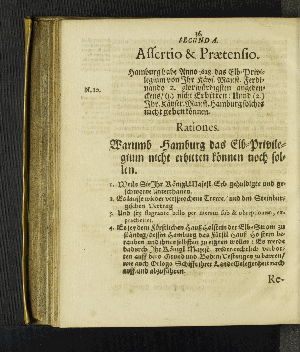 36.
SECUNDA.
Assertio & Prætensio.
Hamburg habe Anno 1628 das Elb-Privi-
legium von Ihr Käys. Mayst. Ferdi-
nando 2. glorwürdigsten angeden-
N. 10.
ckens/ (1.) nicht erbitten: Und (2.)
Ihr. Käyser. Mayst. Hamburg solches
nicht geben können.
Rationes.
Warumb Hamburg das Elb-Privile-
gium nicht erbitten können noch sol-
len.
1. Weils Sie Ihr Königl. Majest. Erb-gehuldigte und ge-
schworne Unterthanen.
2. Es lauffe wieder versprochene Trewe/ und den Steinbur-
gischen Vertrag
3. Und sey flagrante bello per metum sub & obreptione,
4. Es sey dem Fürstlichen Hauß Holstein der Elb-Strom zu-
ständig/ dessen Hamburg das Fürstl. Hauß Holstein be-
rauben und ihme selbsten zu eignen wollen: Es werde
dadurch Ihr Königl Majest. wiederrechtlich verbo-
ten auff dero Grund und Boden Vestungen zu bawen/
wie auch Orlogs Schiffe ihrer Lande Gelegenheit nach
auff und abzuführen.
Re-